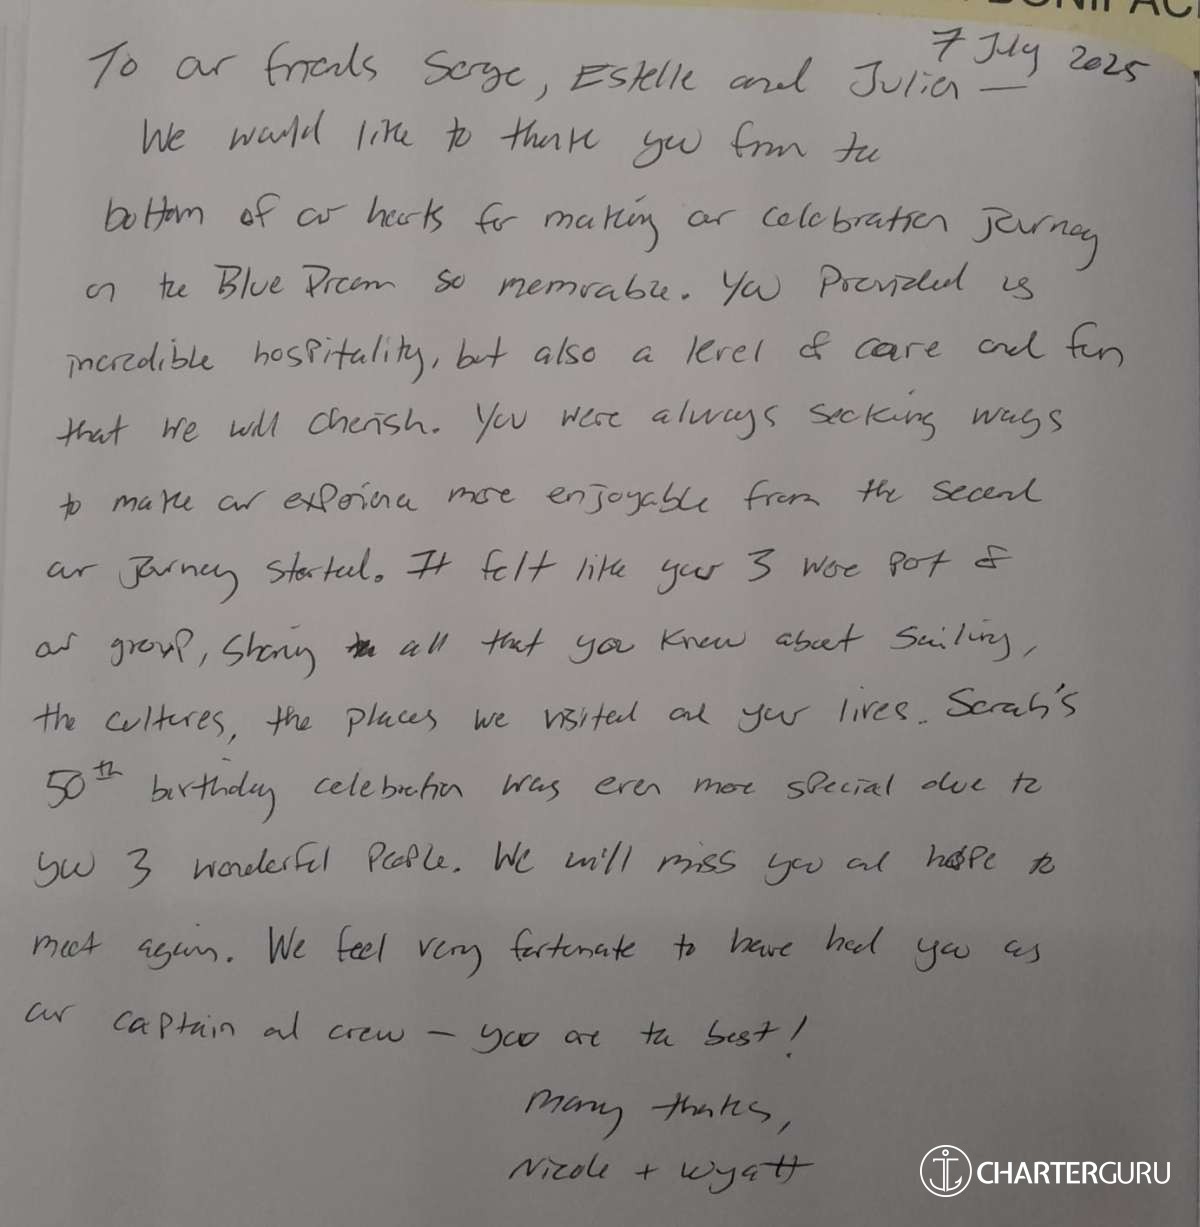 BONIFAC
7 July 2025
To our friends Serge, Estelle and Julien —
We would like to thank you from the
bottom of our hearts for making our celebration journey
on the Blue Dream so memorable. You provided us
incredible hospitality, but also a level of care and fun
that we will cherish. You were always seeking ways
to make our experience more enjoyable from the second
our journey started. It felt like your 3 were part of
our group, sharing all that you knew about sailing,
the cultures, the places we visited and your lives. Sarah's
50th birthday celebration was even more special due to
you 3 wonderful people. We will miss you and hope to
meet again. We feel very fortunate to have had you as
our captain and crew — you are the best!
Many thanks,
Nicole + Wyatt
CHARTERGURU